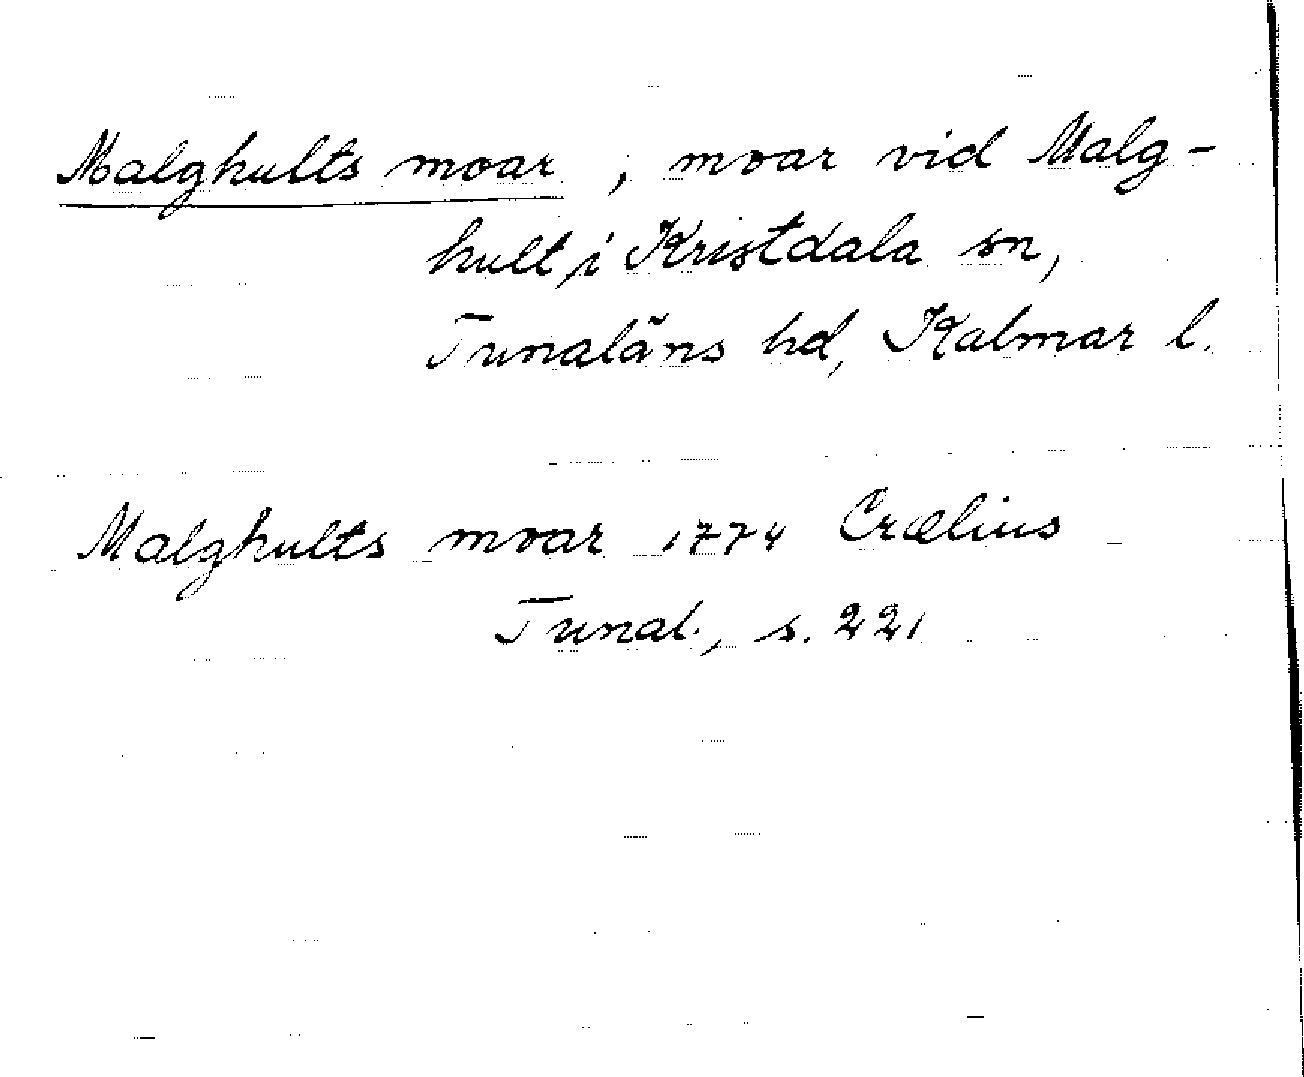 Malghults moar, moar vid Malg-
hult, i Kristdala sn,
Tunaläns hd, Kalmar l.
Malghults moar 1774 Crælius
Tunal., s. 221